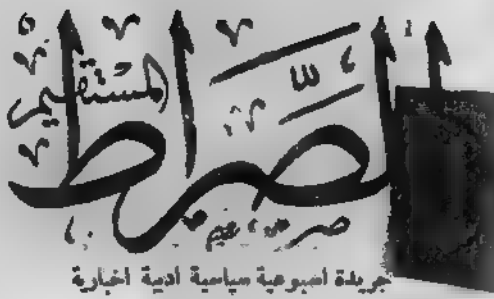 الصراط
المستقيم
جريدة أسبوعية سياسية أدبية أخبارية